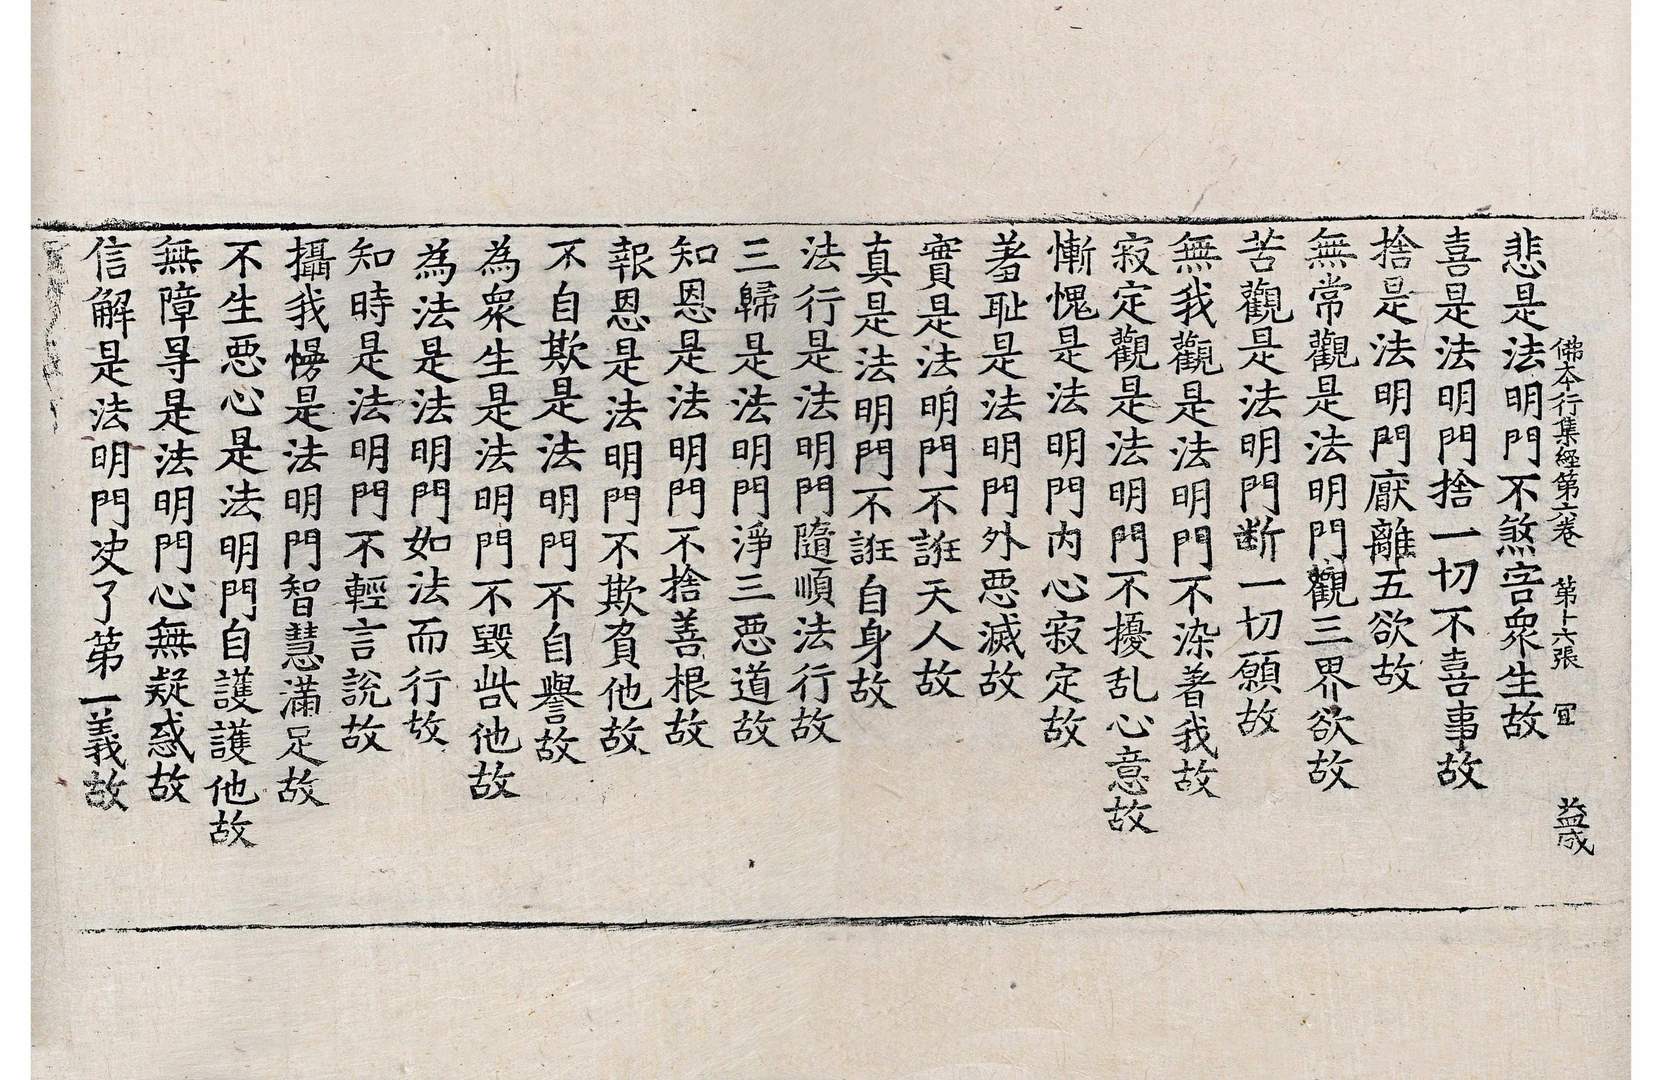 佛本行集経第六卷 第十六張 冝 益成
悲是法明門不煞害衆生故
喜是法明門捨一切不喜事故
捨是法明門厭離五欲故
無常觀是法明門觀三界欲故
苦觀是法明門断一切願故
無我觀是法明門不染著我故
寂定觀是法明門不擾乱心意故
慚愧是法明門内心寂定故
羞耻是法明門外悪滅故
實是法明門不誑天人故
真是法明門不誑自身故
法行是法明門隨順法行故
三歸是法明門淨三悪道故
知恩是法明門不捨善根故
報恩是法明門不欺負他故
不自欺是法明門不自譽故
為衆生是法明門不毀呰他故
為法是法明門如法而行故
知時是法明門不輕言說故
攝我慢是法明門智慧滿足故
不生悪心是法明門自護護他故
無障㝵是法明門心無疑惑故
信解是法明門决了第一義故